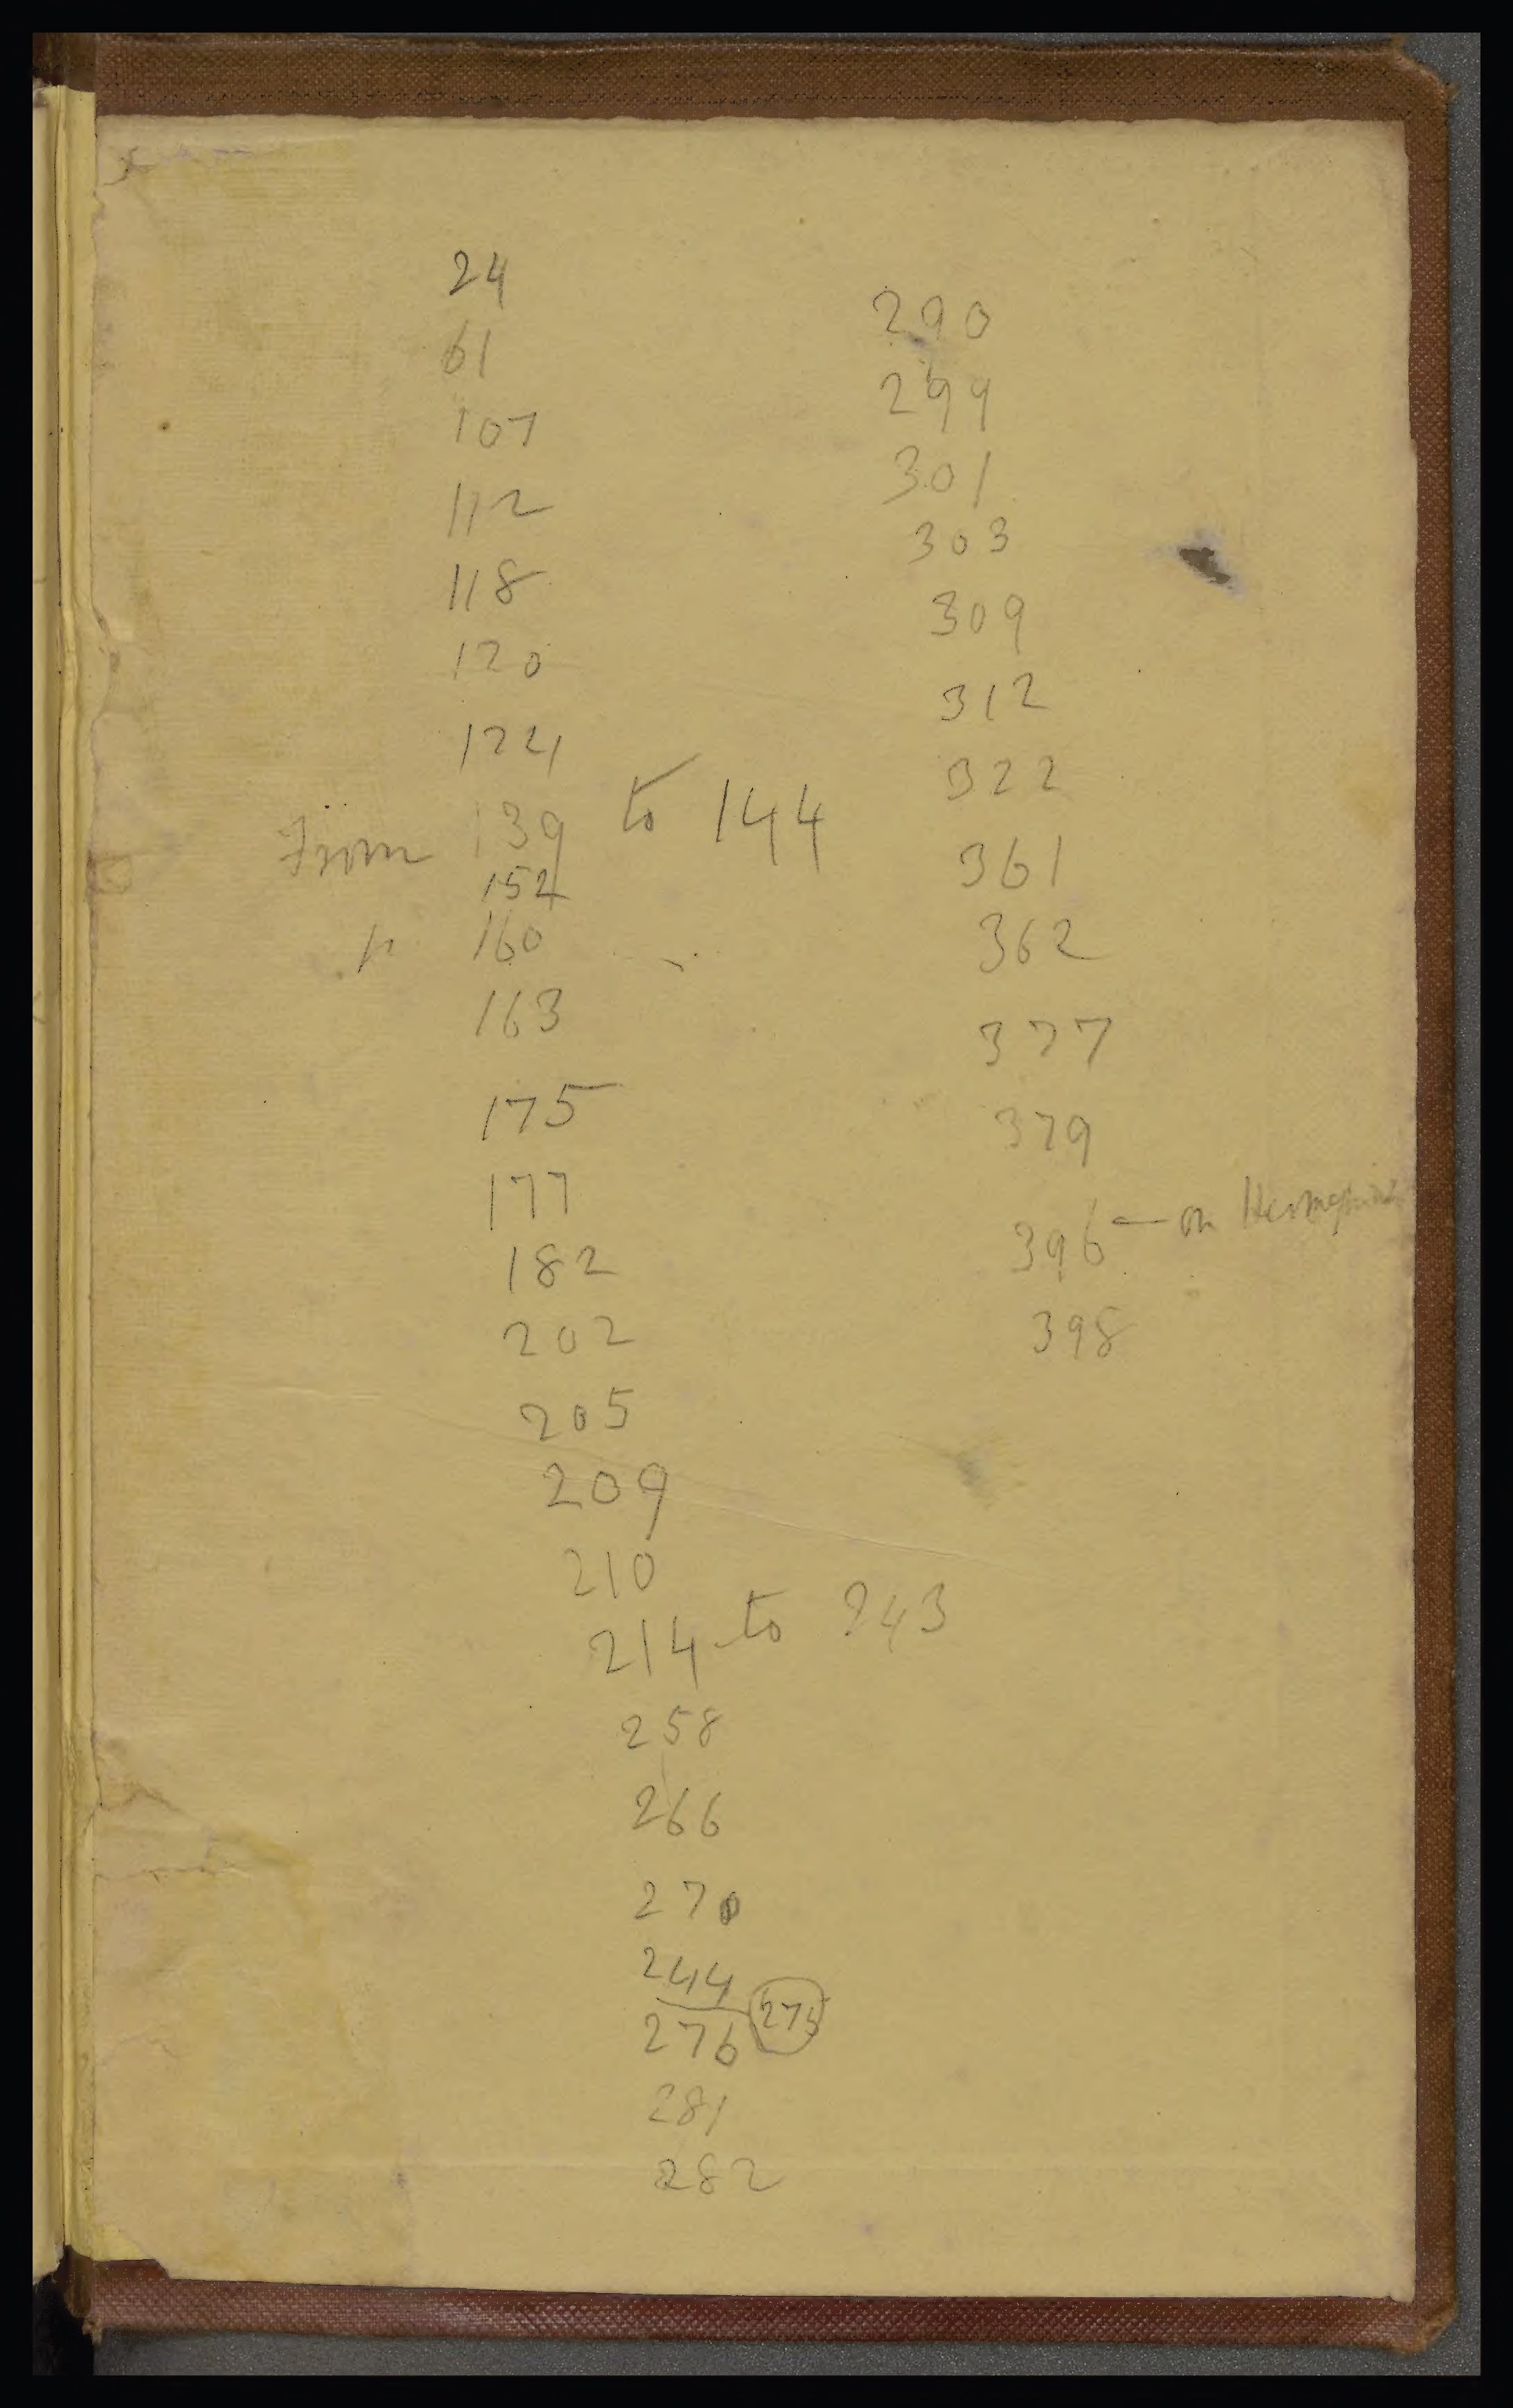 24
61
107
112
118
120
124
From 139 to 144
152
p 160
163
175
177
182
202
205
209
210
214 to 243
258
266
270
244
276 275
281
282
290
299
301
303
309
312
322
361
362
377
379
396 — on
398